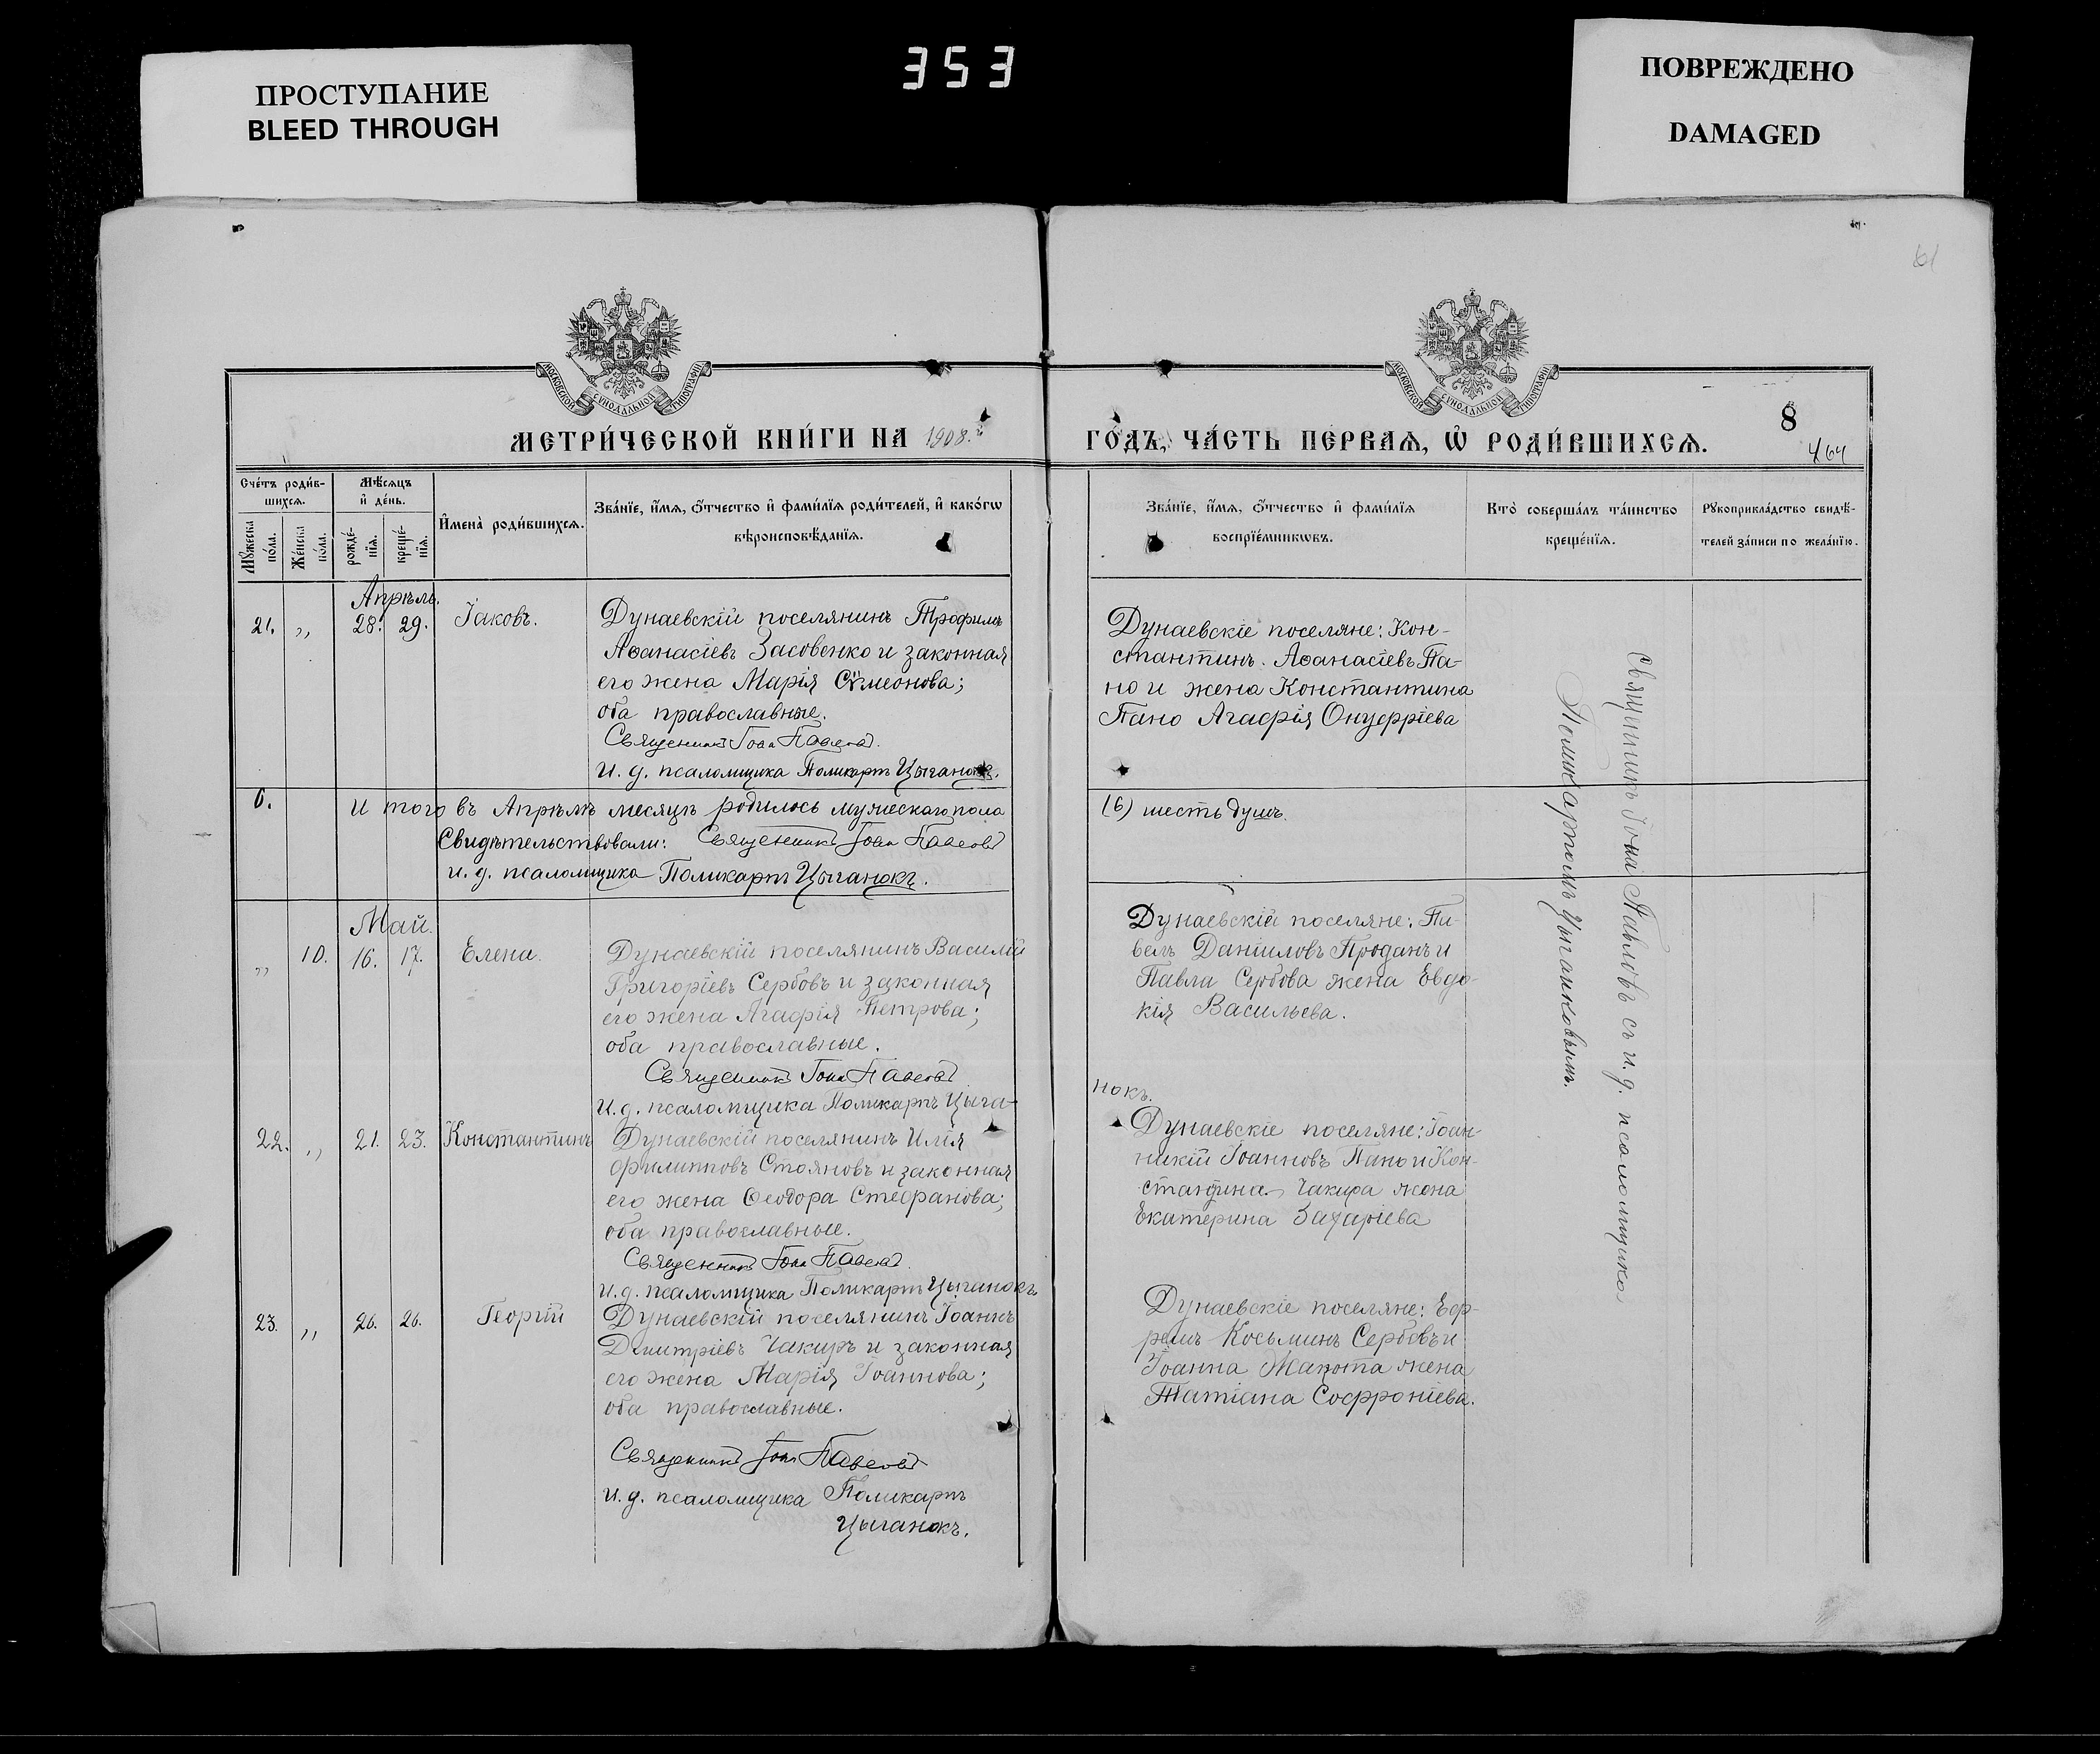 ПРОСТУПАНИЕ
BLEED THROUGH
353
ПОВРЕЖДЕНО
DAMAGED
61
МОСКОВСКОЙ СѴНОДАЛЬНОЙ ТИПОГРАФІИ
МОСКОВСКОЙ СѴНОДАЛЬНОЙ ТИПОГРАФІИ
МЕТРИ́ЧЕСКОЙ КНИ́ГИ НА 1908.й
ГО́ДЪ, ЧА́СТЬ ПЕ́РВАѦ, Ѡ҆ РОДИ́ВШИХСѦ.
8
464
Сче́тъ роди́в-
шихсѧ.
Мꙋ́жеска
по́ла.
Же́нска
по́ла.
Мѣ́сѧцъ
и҆ де́нь.
рожде́-
нїѧ.
креще́-
нїѧ.
И҆мена̀ роди́вшихсѧ.
Зва́нїе, и҆́мѧ, ѻ҆́тчество и҆ фами́лїѧ роди́телей, и҆ како́гѡ
вѣроисповѣ́данїѧ.
Зва́нїе, и҆́мѧ, ѻ҆́тчество и҆ фами́лїѧ
воспрїе́мникѡвъ.
Кто̀ соверша́лъ та́инство
креще́нїѧ.
Рꙋкоприкла́дство свидѣ́-
телей за́писи по жела́нїю.
Апрѣль.
21. „ 28. 29. Іаковъ.
Дунаевскій поселянинъ Трофимъ
Аѳанасіевъ Засовенко и законная
его жена Марія Сѵмеонова;
оба православные.
Священникъ Іоан Павловъ.
И. д. псаломщика Поликарпъ Цыганокъ.
Дунаевскіе поселяне: Кон-
стантинъ Аѳанасіевъ Па-
но и жена Константина
Пано Агафія Онуфріева
6. И того въ Апрѣлѣ месяцѣ родилось мужескаго пола
(6) шесть душъ.
Свидѣтельствовали: Священникъ Іоан Павловъ
и. д. псаломщика Поликарпъ Цыганокъ.
Май.
„ 10. 16. 17. Елена.
Дунаевскій поселянинъ Василій
Григоріевъ Сербовъ и законная
его жена Агафія Петрова;
оба православные.
Священникъ Іоан Павловъ
И. д. псаломщика Поликарпъ Цыга-
нокъ.
Дунаевскій поселяне: Па-
велъ Даніиловъ Проданъ и
Павла Сербова жена Евдо-
кія Васильева.
22. „ 21. 23. Константинъ
Дунаевскій поселянинъ Илія
Филипповъ Стояновъ и законная
его жена Ѳеодора Стефанова;
оба православные.
Священникъ Іоан Павловъ
и. д. псаломщика Поликарпъ Цыганокъ
Дунаевскіе поселяне: Іоан-
никій Іоанновъ Пано и Кон-
стантина Чакира жена
Екатерина Захаріева
23. „ 26. 26. Георгій
Дунаевскій поселянинъ Іоаннъ
Димитріевъ Чакиръ и законная
его жена Марія Іоаннова;
оба православные.
Священникъ Іоан Павловъ
и. д. псаломщика Поликарпъ
Цыганокъ.
Дунаевскіе поселяне: Еф-
ремъ Косьминъ Сербовъ и
Іоанна Жакота жена
Татіана Софроніева.
Священникъ Іоаннъ Павловъ съ и. д. псаломщика
Поликарпомъ Цыганковымъ.